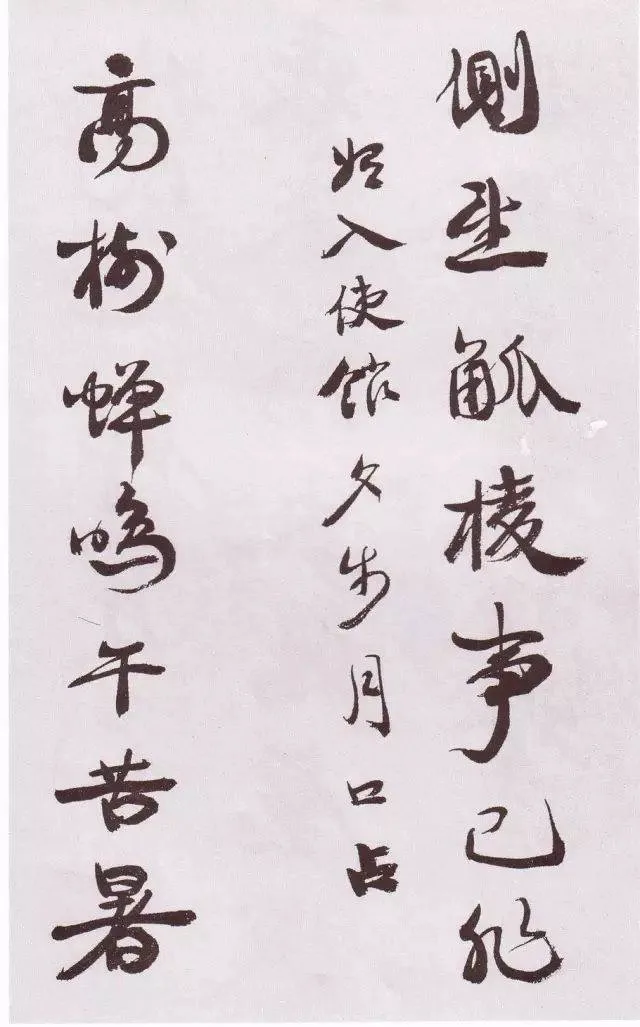 側望觚棱事已非
始入使館夕步月口占
高樹蟬鳴午苦暑